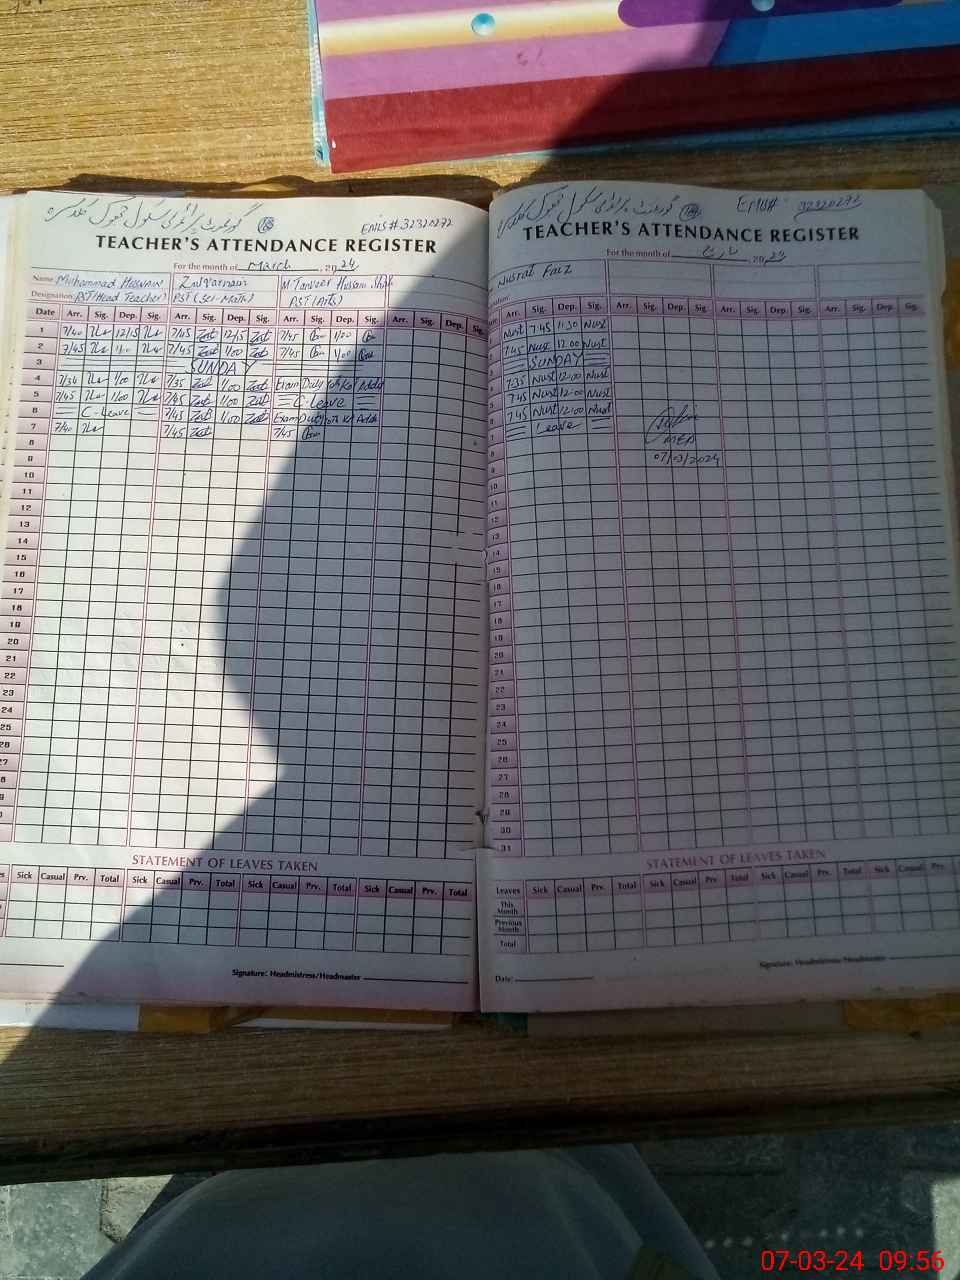 گورنمنٹ پرائمری سکول جھوک
EMIS # 32320272
TEACHER'S ATTENDANCE REGISTER
For the month of March, 2024
Name Muhammad Hussnain
M. Tanveer Hussain Shah
Designation: PST (Head Teacher) PST (Sci-Math) PST (Arts)
Date Arr. Sig. Dep. Sig. Arr. Sig. Dep. Sig. Arr. Sig. Dep. Sig. Arr. Sig. Dep. Sig.
1 7/40 12/15 7/45 12/15 7/45 1/00
2 7/45 1/00 7/45 1/00 7/45 1/00
3 SUNDAY
4 7/34 1/00 7/35 1/00 Exam Duty
5 7/45 1/00 7/45 1/00 C-Leave
6 C-Leave 7/45 1/00 Exam Duty
7 7/40 7/45 7/45
8
9
10
11
12
13
14
15
16
17
18
19
20
21
22
23
24
25
26
27
STATEMENT OF LEAVES TAKEN
Sick Casual Prv. Total Sick Casual Prv. Total Sick Casual Prv. Total Sick Casual Prv. Total
Signature: Headmistress/Headmaster
گورنمنٹ پرائمری سکول جھوک
EMIS# 32320272
TEACHER'S ATTENDANCE REGISTER
For the month of مارچ, 2024
Nusrat Faiz
Arr. Sig. Dep. Sig. Arr. Sig. Dep. Sig. Arr. Sig. Dep. Sig. Arr. Sig. Dep. Sig.
Nust 7:45 11:30 Nust
7:45 Nust 12:00 Nust
SUNDAY
7:35 Nust 12:00 Nust
7:45 Nust 12:00 Nust
7:45 Nust 12:00 Nust
Leave
07/03/2024
8
9
10
11
12
13
14
15
16
17
18
19
20
21
22
23
24
25
26
27
28
29
30
31
STATEMENT OF LEAVES TAKEN
Leaves Sick Casual Prv. Total Sick Casual Prv. Total Sick Casual Prv. Total Sick Casual Prv. Total
This Month
Previous Month
Total
Signature: Headmistress/Headmaster
Date:
07-03-24 09:56